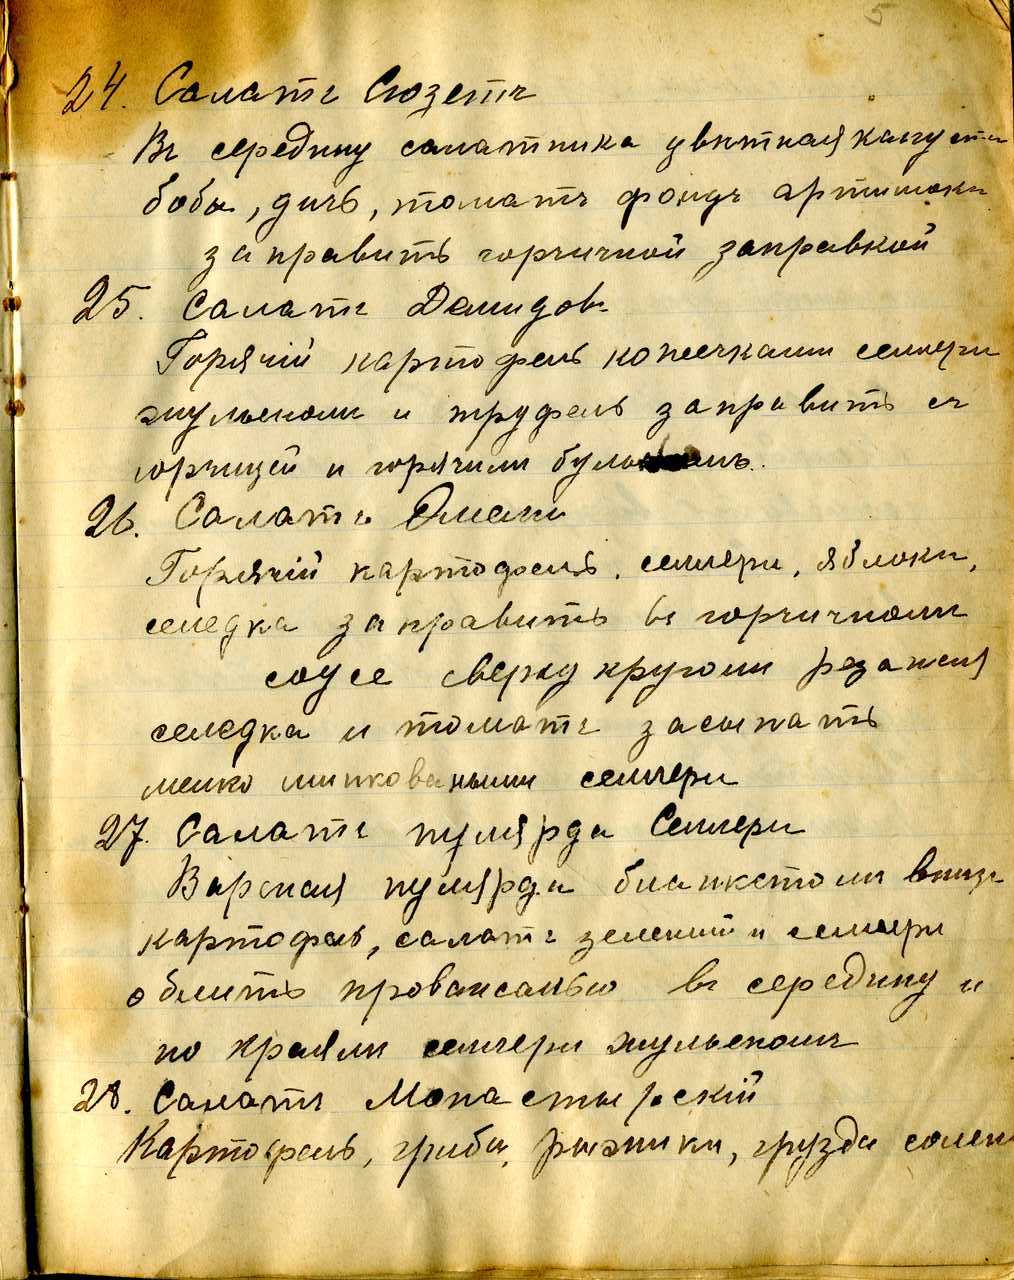 5
24. Салатъ Сюзетъ
Въ середину салатника цвѣтная капуста
бобы, дичь, томатъ фондъ артишоки
заправить горчичной заправкой
25. Салатъ Демидовъ
Горячій картофель копеечками селлери
жульеномъ и труфель заправить съ
горчицей и горячимъ
26. Салатъ
Горячій картофель, селлери, яблоки,
селедка заправить въ горчичномъ
соусе сверху кругомъ резанная
селедка и томатъ засыпать
мелко шинкованымъ селлери
27. Салатъ пулярда Селлери
Вареная пулярда бланкетомъ внизъ
картофель, салатъ зеленый и селлери
облить провансалью въ середину и
по краямъ селлери жульеномъ
28. Салатъ Монастырскій
Картофель, грибы, рыжики, грузди солен